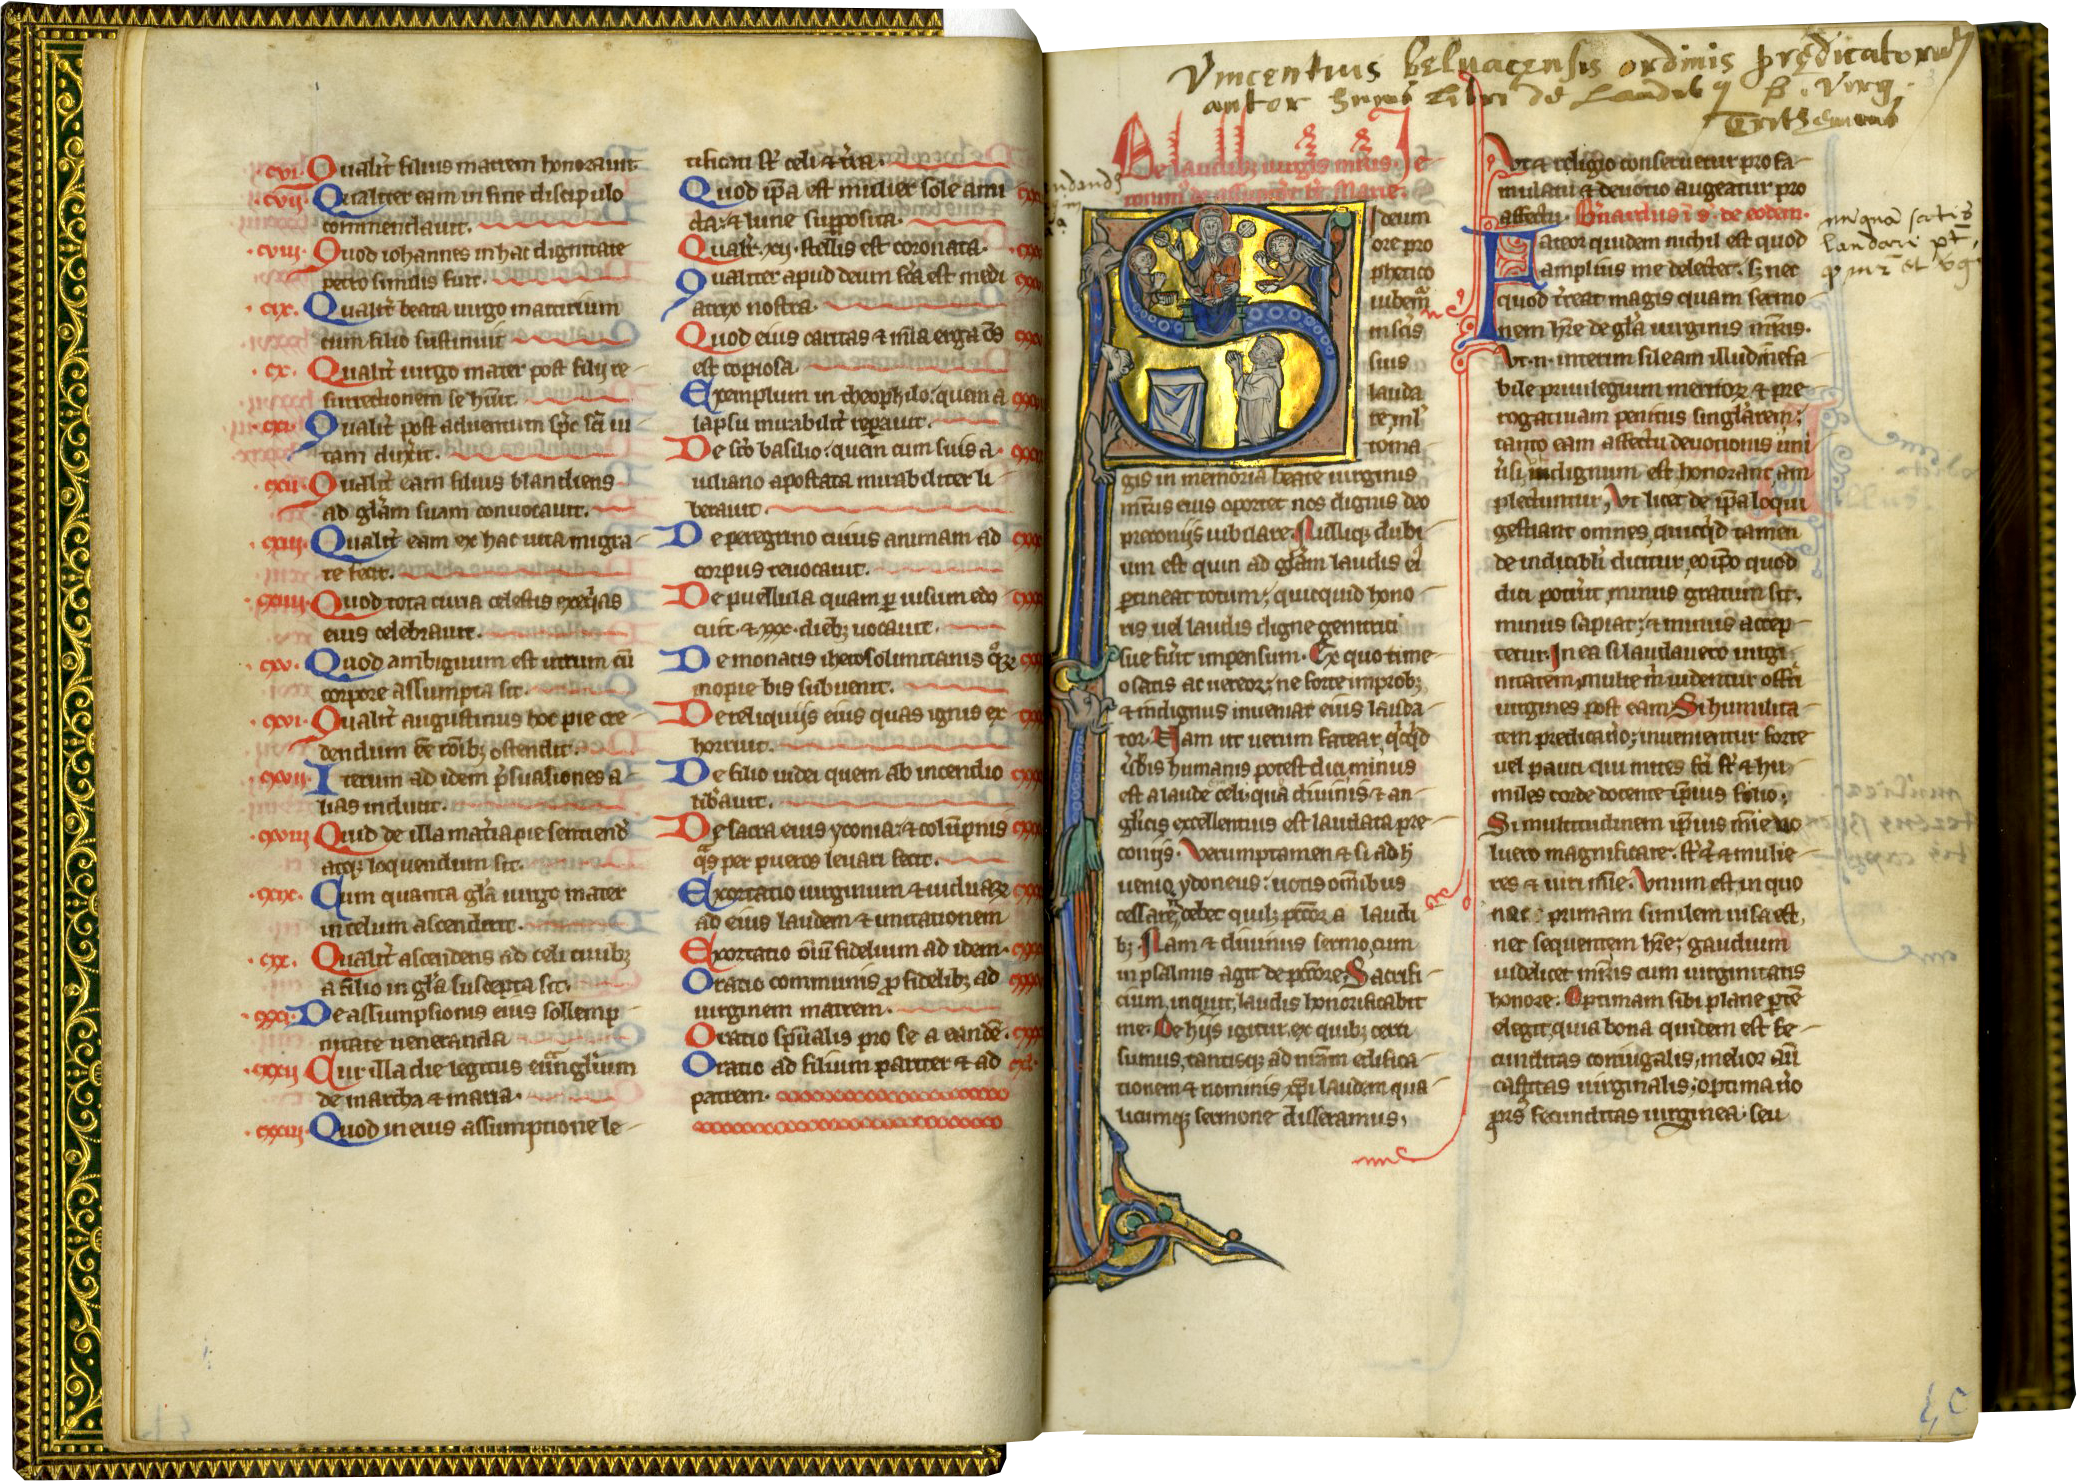 .cvi. Qualit̛ filius matrem honorauit
.cvii. Qualiter eam in fine discipulo
commendauit.
.cviii. Quod iohannes in hac dignitate
.cix. Qualit̛ beata uirgo martirium
cum filio sustinuit
.cx. Qualit̛ uirgo mater post filij re-
surrectionem se hūit
.cxi. Qualit̛ post aduentum sp̄c sc̄i ui-
tam dux̄it.
.cxii. Qualit̛ eam filius blandiens
ad gl̄am suam conuocauit.
.cxiii. Qualit̛ eam ex hac uita migra-
re fecit.
.cxiiii. Quod tota curia celestis exeq̄ias
eius celebrauit.
.cxv. Quod ambiguum est utrum cū
corpore assumpta sit.
.cxvi. Qualit̛ augustinus hoc pie cre-
dendum ēē rōnibꝫ ostendit.
.cxvii. Iterum ad idem p̄suasiones a-
lias inducit.
.cxviii. Quid de illa mat̄ia pie sentiend̄
atqꝫ loquendum sit.
.cxix. Cum quanta gl̄a uirgo mater
in celum ascenderit.
.cxx. Qualit̛ ascendens ad celi ciuibꝫ
a filio in gl̄a suscepta sit.
.cxxi. De assumpsionis eius sollemp-
nitate ueneranda
.cxxii. Cur illa die legitus euāngl̄ium
de martha & maria.
.cxxiii. Quod in eius assumptione le-
tificati st̄ celi & t̄ra.
Quod ip̄a est mulier sole ami
cta: & lune supposita.
Qualit̛ .xij. stellis est coronata.
Qualiter apud deum fc̄a est medi
atrix nostra.
Quod eius caritas & mīa erga ōs
est copiosa.
Exemplum in theophilo: quem a
lapsu mirabilit̛ rep̄auit.
De sc̄o basilio: quem cum suis a
iuliano apostata mirabiliter li-
berauit.
De peregrino cuius animam ad
corpus reuocauit.
De puellula quam ꝑ uisum edo-
cuit. & .xxx. diebꝫ uocauit.
De monacis iherosolimitanis
inopie bis subuenit.
De reliquijs eius quas ignis ex-
horruit.
De filio iudei quem ab incendio
lib̄auit.
De sacra eius yconia: & colūpnis
q̄s per pueros leuari fecit.
Exortatio uirginum & uiduarꝝ
ad eius laudem & imitationem
Exortatio ōiū fidelium ad idem.
Oratio communis ꝓ fidelibꝫ ad
uirginem matrem.
Oratio sp̄ualis pro se a eandē.
Oratio ad filium pariter & ad
patrem.
Vincentius beluacensis ordinis predicatorum
autor huius libri de Laudibꝯ b. virg.
Trithemius
De laudibꝫ uirgīs mr̄is. Ie-
ronimꝰ de assumpt̄ br̄ Marie.
Si deum
ore pro
phetico
iubem̄
in sc̄is
suis
lauda
re ml̄
toma
gis in memoria beate uirginis
mr̄is eius oportet nos dignis deo
preconijs iubilare. Nulliqꝫ dubi
um est quin ad gl̄am laudis ei̛
ꝑtineat totum; quicquid hono-
ris uel laudis digne genitrici
sue fūit impensum. Ex quo time-
o satis ac uereor; ne forte improbꝫ
& indignus inueniar eius lauda-
tor. Nam ut uerum fatear, q̄cq̄d
ūbis humanis potest dici minus
est a laude celi; qua diuinis & an-
gl̄icis excellentius est laudata pre-
conijs. Verumptamen & si ad h̄
uenio ydoneus: uotis omībus
cessare n̄ debet quilꝫ pc̄cor a laudi
bꝫ. Nam & diuinus sermo, cum
in psalmis agit de pc̄core; Sacrifi-
cium, inquit, laudis honorificabit
me. De hijs igitur, ex quibꝫ certi
sumus, tantisqꝫ ad nr̄am edifica-
tionem & nominis xp̄i laudem qua-
licumqꝫ sermone disseramus,
Vt & religio conseruetur pro fa-
mulatu & deuotio augeatur pro
affectu. B̛nardus ī s. de eodem.
Fateor quidem nichil est quod
amplius me delectet. sꝫ nec
quod t̄reat magis quam sermo-
nem hr̄e de gl̄a uirginis mr̄is.
Vt .n. interim sileam illud īnefa-
bile priuilegium meritorꝝ & pre-
rogatiuam penitus singl̄arem;
tanto eam affectu deuotionis uni
ūsi, indignum est honorant, am
plectuntur, Vt licet de ip̄a loqui
gestiant omnes, quicq̄d tamen
de indicibl̄i dicitur, eo ip̄o quod
dici potūit, minus gratum sit.
minus sapiat; & minus accep-
tetur. In ea si laudauero uirgi-
nitatem; multe m̄ uidentur offr̄i
uirgines post eam. Si humilita-
tem predicauero; inuenientur forte
uel pauci qui mites fc̄i st̄ & hu-
miles corde docente ip̄ius filio;
Si multitudinem ip̄ius mīe uo-
luero magnificare. st̄ & mulie-
res & uiri mīe. Vnum est, in quo
nec primam similem uisa est,
nec sequentem hr̄e; gaudium
uidelicet mr̄is cum uirginitatis
honore. Optimam sibi plane ꝑtē
elegit, quia bona quidem est fe-
cunditas coniugalis, melior aū
castitas uirginalis; optima u̇o
prorsꝰ fecunditas uirginea. seu
nunquā satis
laudari pt̄,